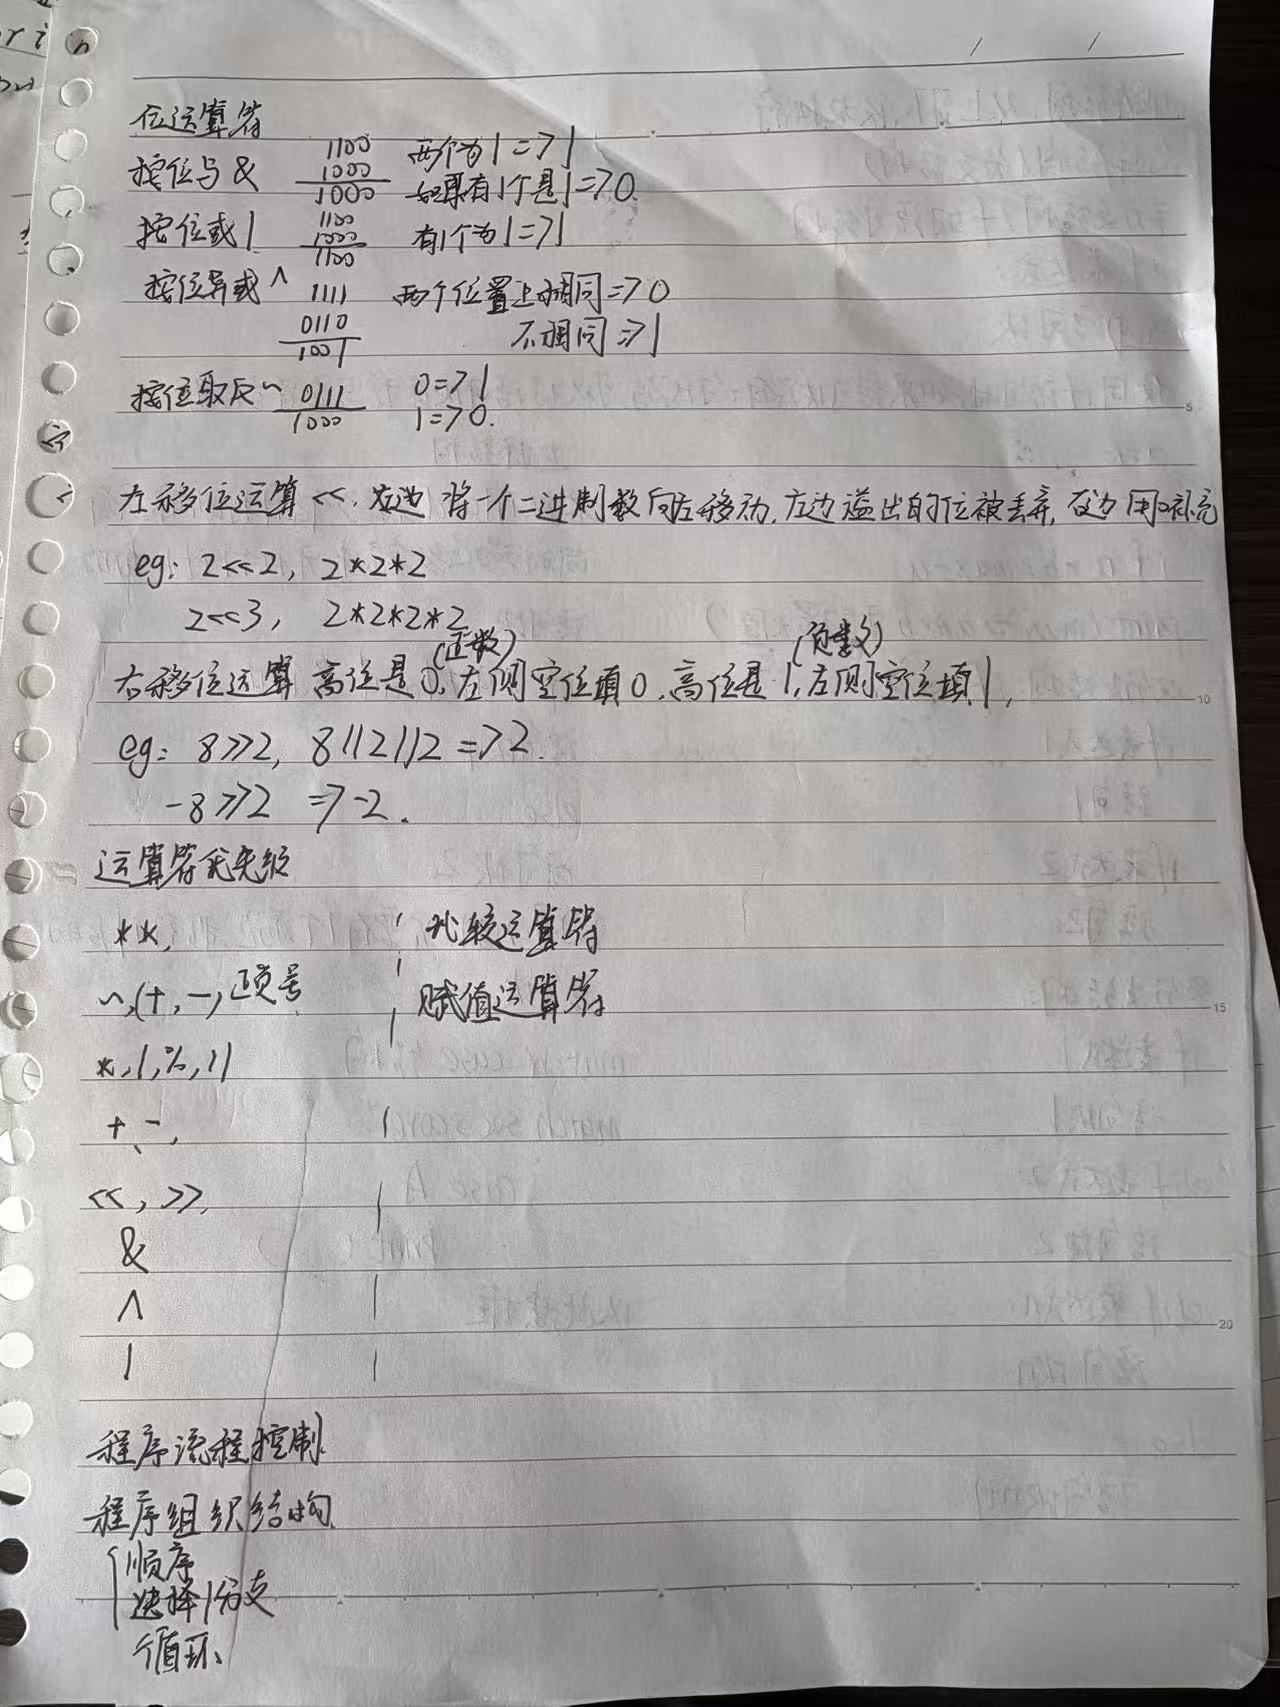 位运算符
按位与 & 1100 两个为1=>1
1000 如果有1个是1=>0.
1000
按位或 | 1100 有1个为1=>1
1000
1100
按位异或 ^ 1111 两个位置上相同=>0
0110 不相同=>1
1001
按位取反~ 0111 0=>1
1000 1=>0.
左移位运算<<. 将一个二进制数向左移动,左边溢出的位被丢弃,右边用0补充
eg: 2<<2, 2*2*2
2<<3, 2*2*2*2
右移位运算 高位是0(正数),左侧空位填0,高位是1(负数),左侧空位填1,
eg: 8>>2, 8//2//2=>2.
-8>>2 =>-2.
运算符优先级
**, 比较运算符
~,(+,-,正负号 赋值运算符
*,/,%,//
+,-,
<<,>>,
&
^
|
程序流程控制.
程序组织结构
顺序
选择/分支
循环.